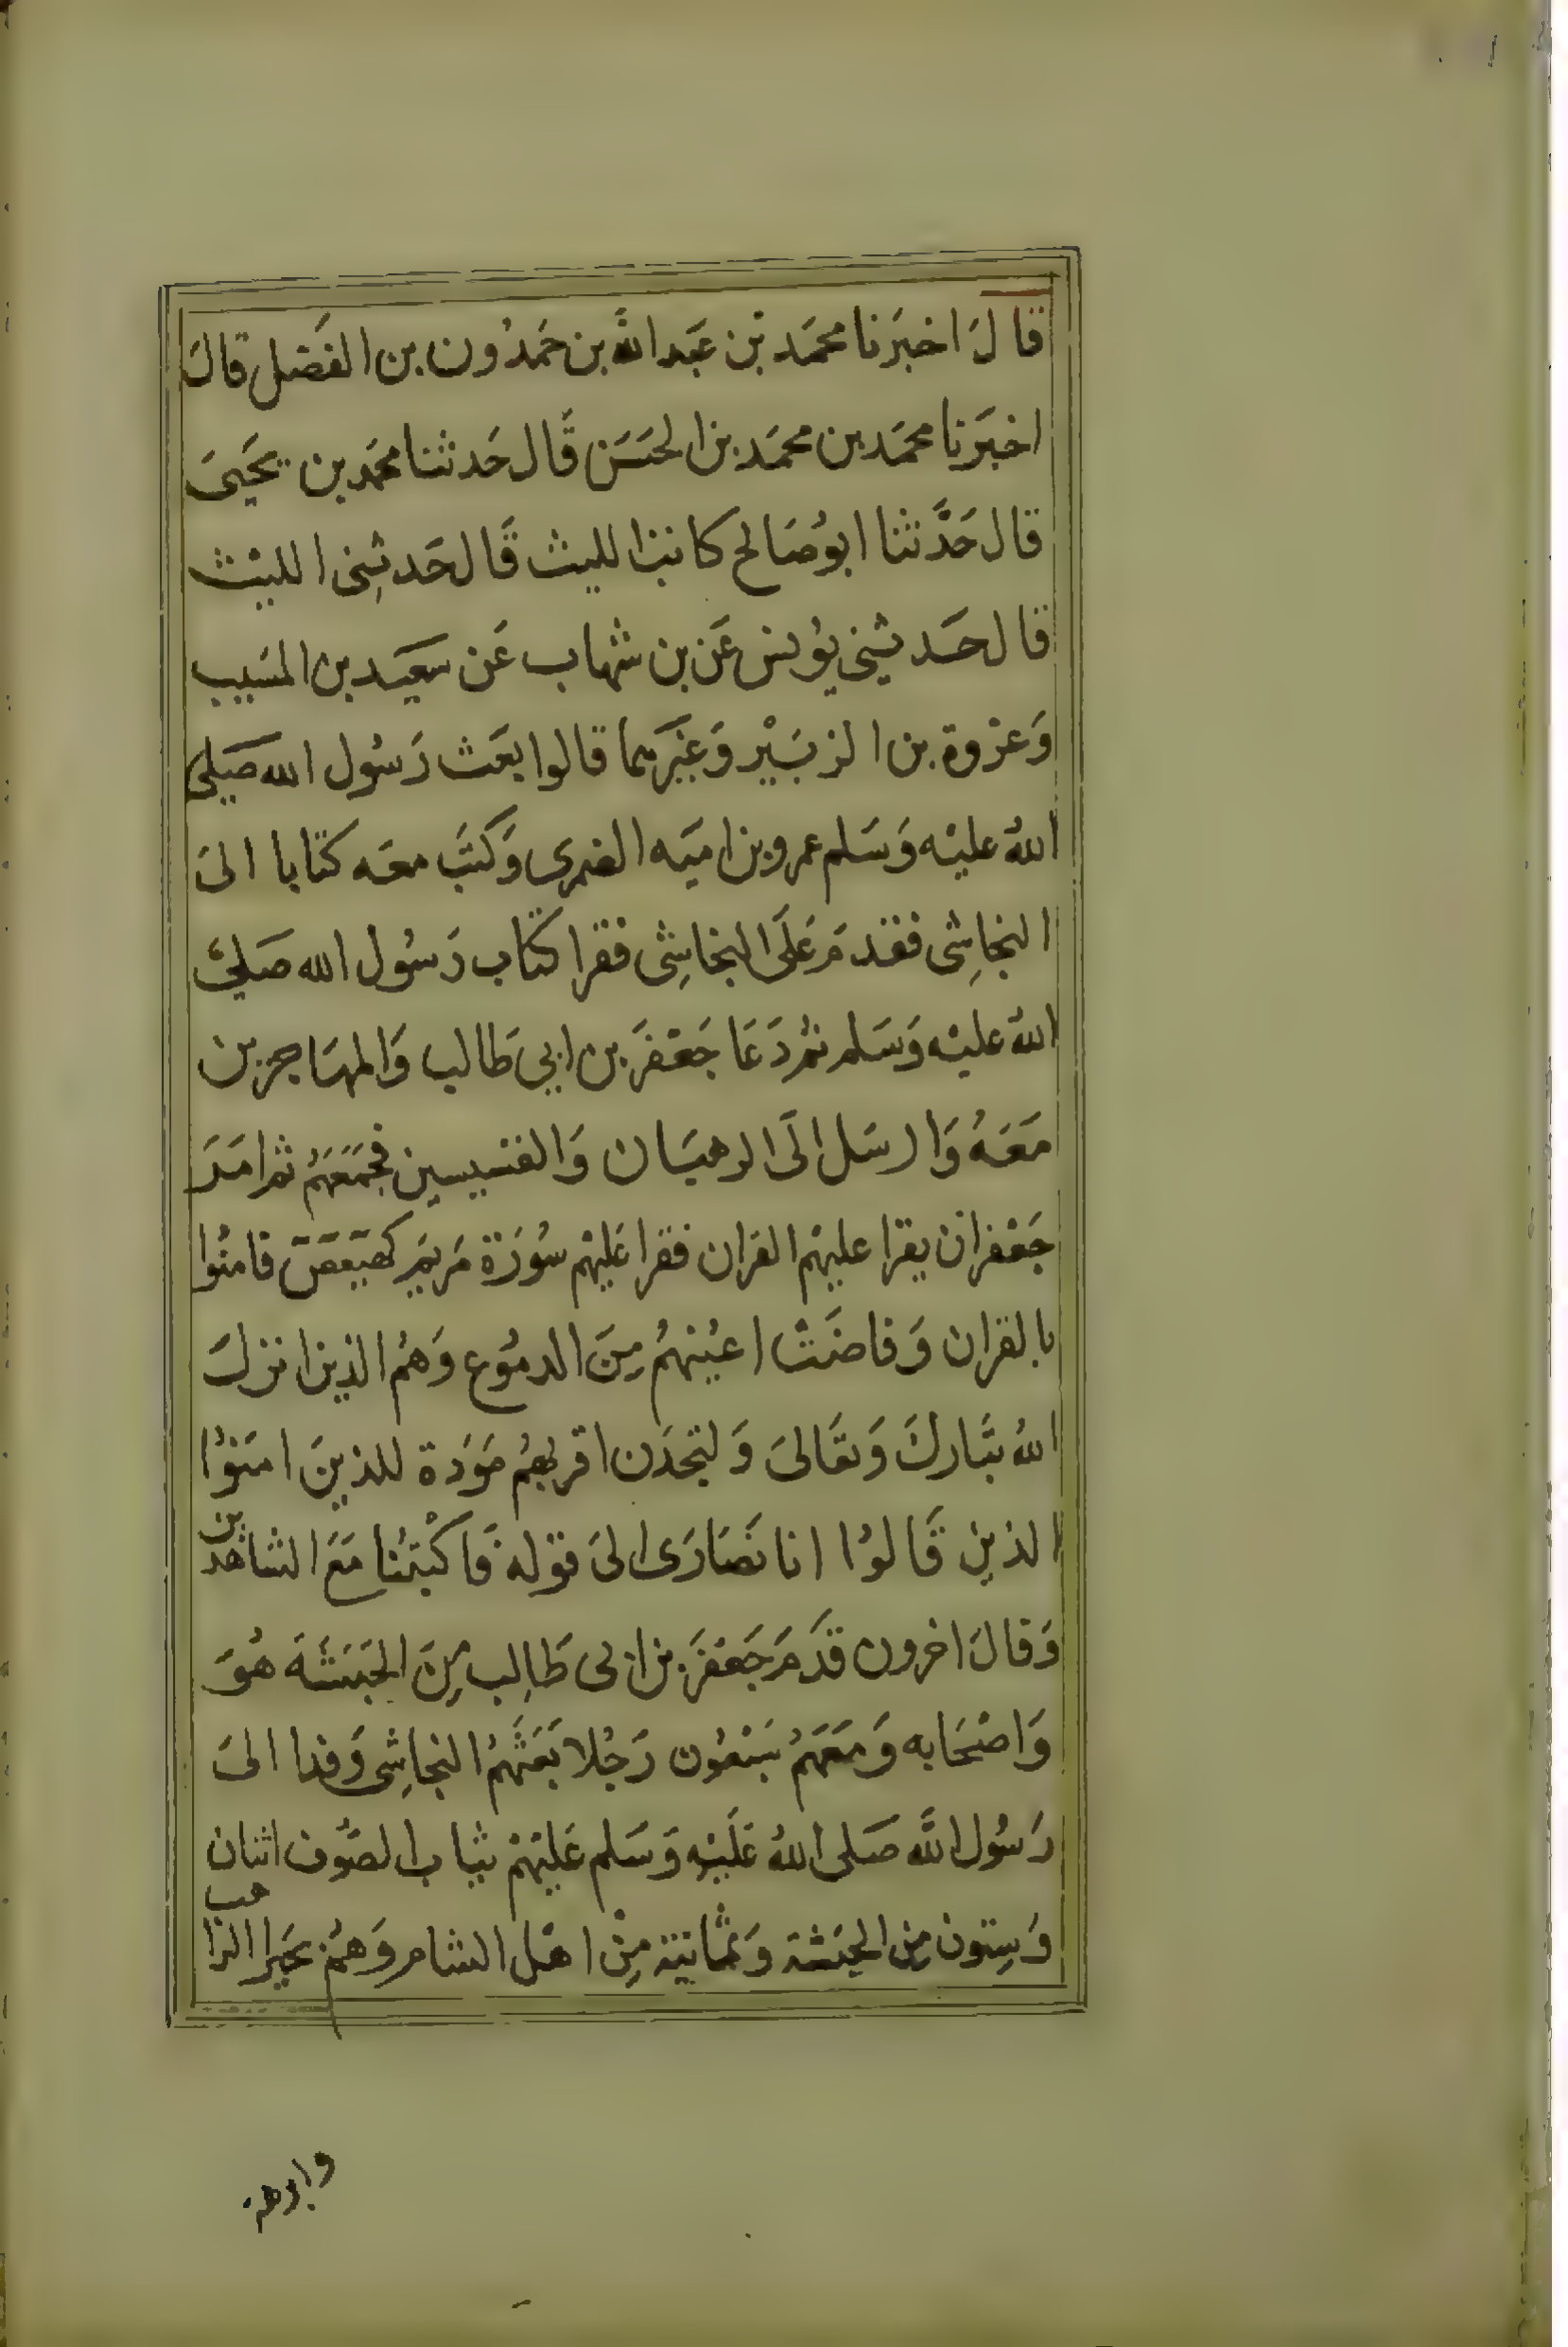 قال اخبرنا محمد بن عبد الله بن حمدون بن الفضل قال
اخبرنا محمد بن محمد بن الحسن قال حدثنا محمد بن يحيى
قال حدثنا ابو صالح كاتب الليث قال حدثني الليث
قال حدثني يونس عن بن شهاب عن سعيد بن المسيب
وعروة بن الزبير وغيرهما قالوا بعث رسول الله صلى
الله عليه وسلم عمرو بن اميه الضمري وكتب معه كتابا الى
النجاشي فقدم على النجاشي فقرا كتاب رسول الله صلى
الله عليه وسلم ثم دعا جعفر بن ابي طالب والمهاجرين
معه وارسل الى الرهبان والقسيسين فجمعهم ثم امر
جعفر ان يقرا عليهم القران فقرا عليهم سورة مريم كهيعص فامنوا
بالقران وفاضت اعينهم من الدموع وهم الذين انزل
الله تبارك وتعالى ولتجدن اقربهم مودة للذين امنوا
الذين قالوا انا نصارى الى قوله فاكتبنا مع الشاهدين
وقال اخرون قدم جعفر بن ابي طالب من الحبشة هو
واصحابه ومعهم سبعون رجلا بعثهم النجاشي وفدا الى
رسول الله صلى الله عليه وسلم عليهم ثياب الصوف اثنان
وستون من الحبشة وثمانية من اهل الشام وهم بحيرا الراهب
وابرهه